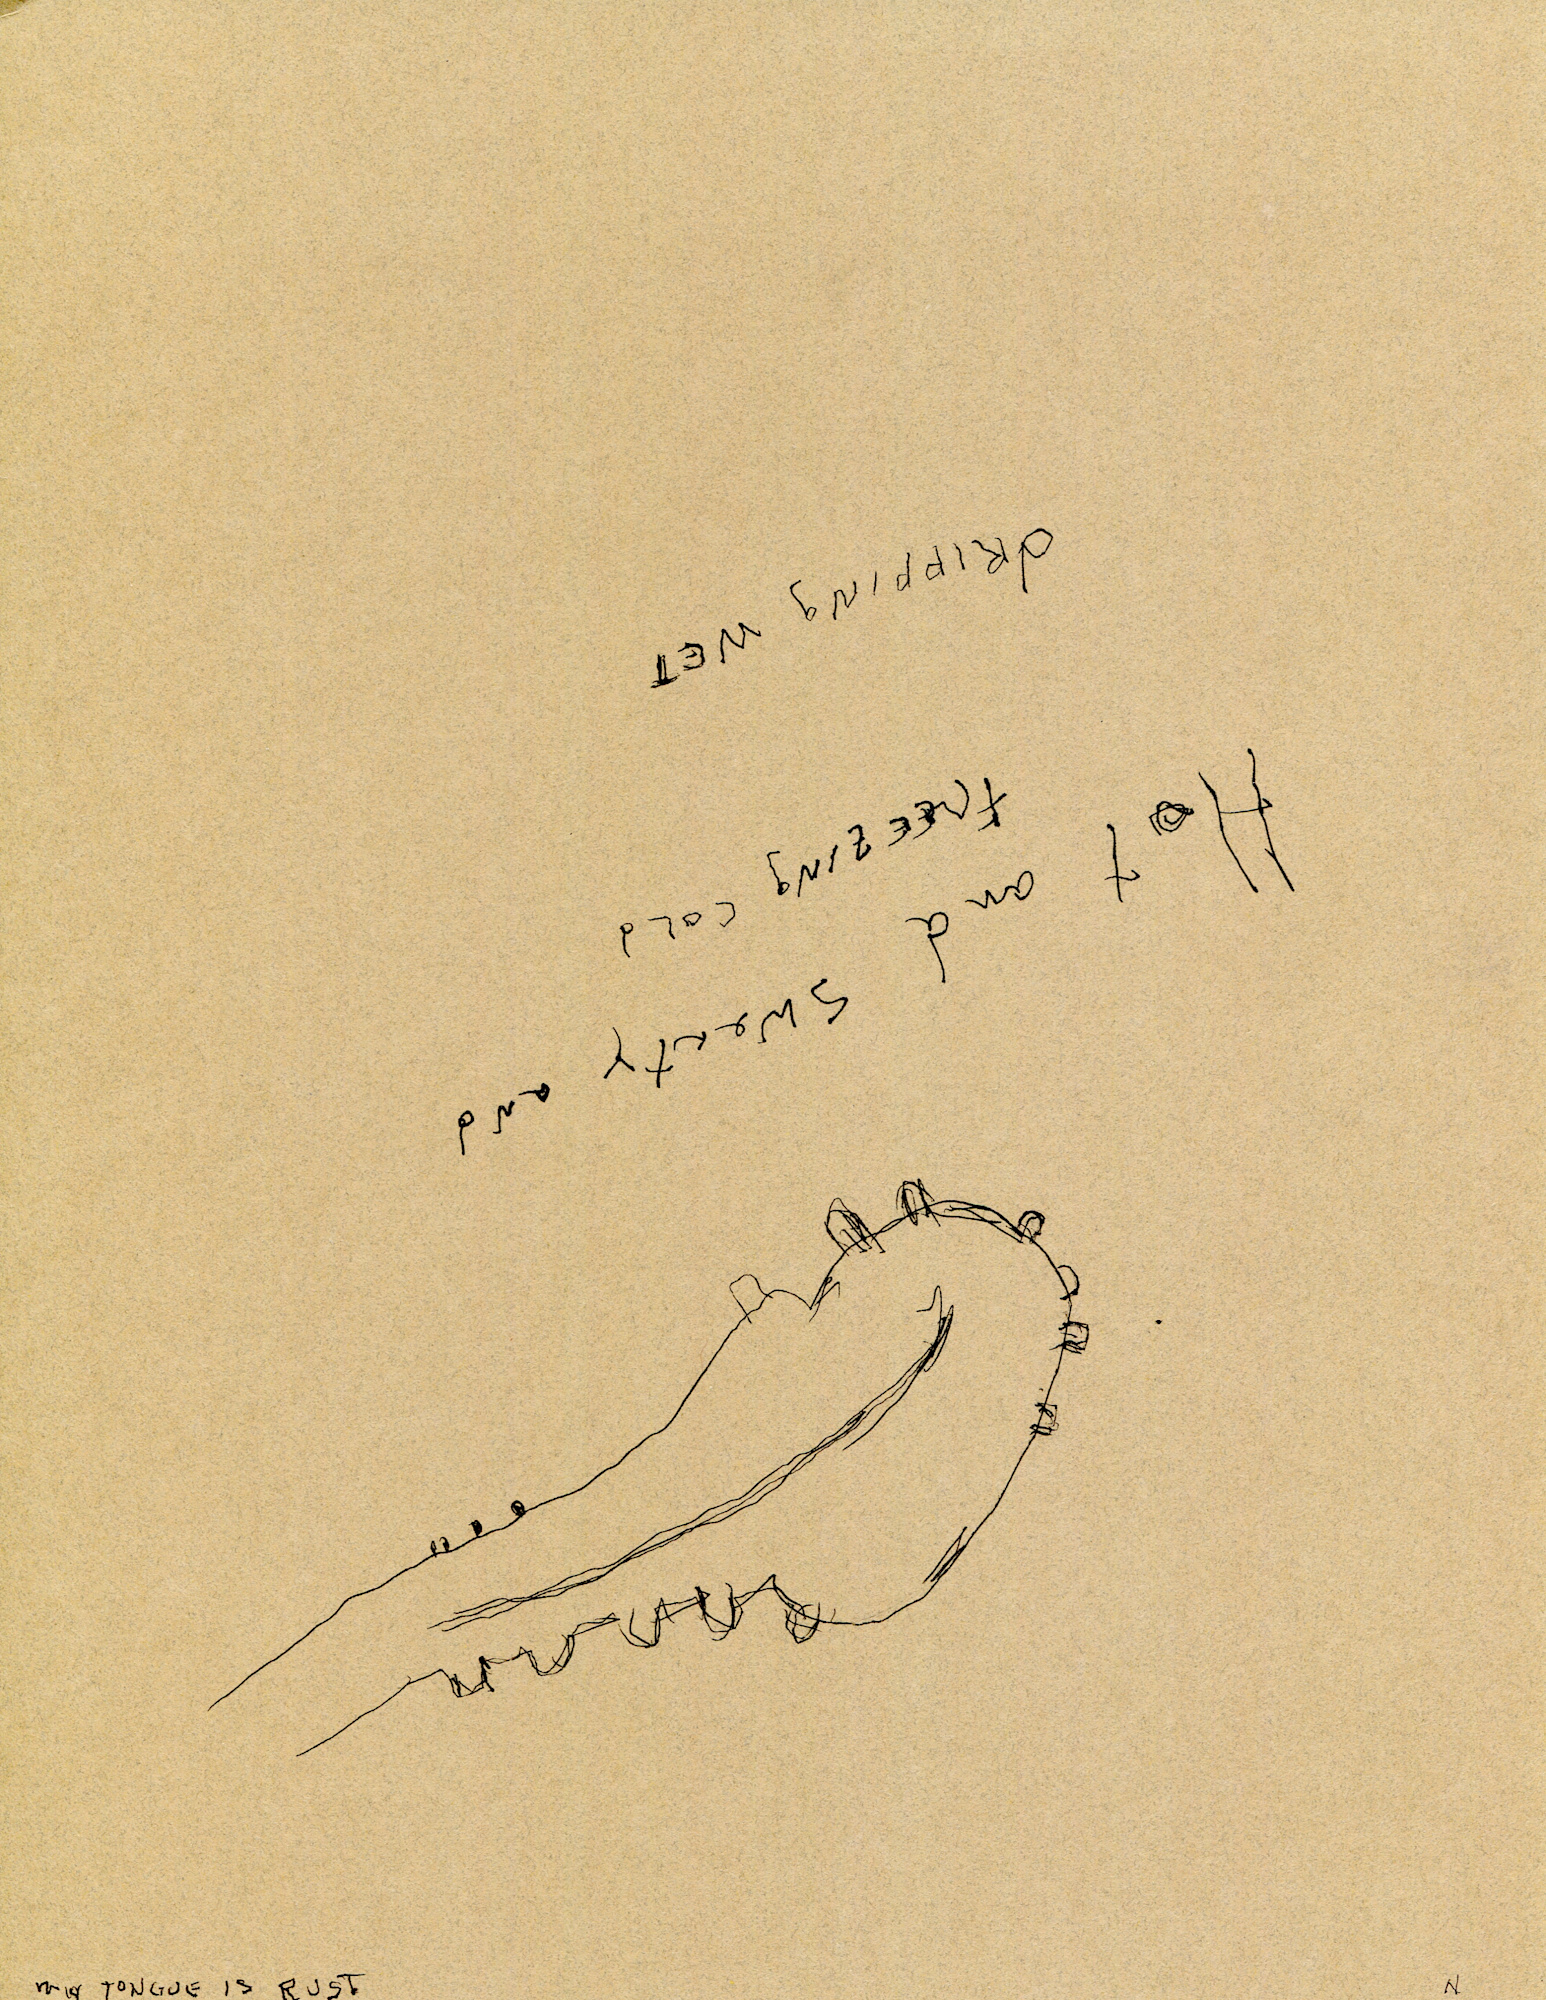 Hot and Sweaty and
FREEZING COLD
dRIPPING WET
my TONGUE IS RUST
N